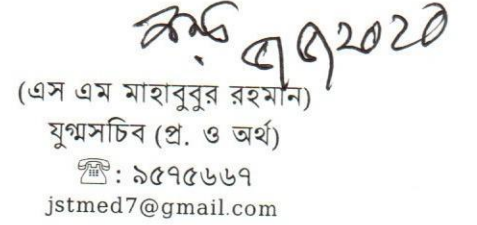 (এস এম মাহাবুবুর রহমান)
যুগ্মসচিব (প্র. ও অর্থ)
☎: ৯৫৭৫৬৬৭
jstmed7@gmail.com